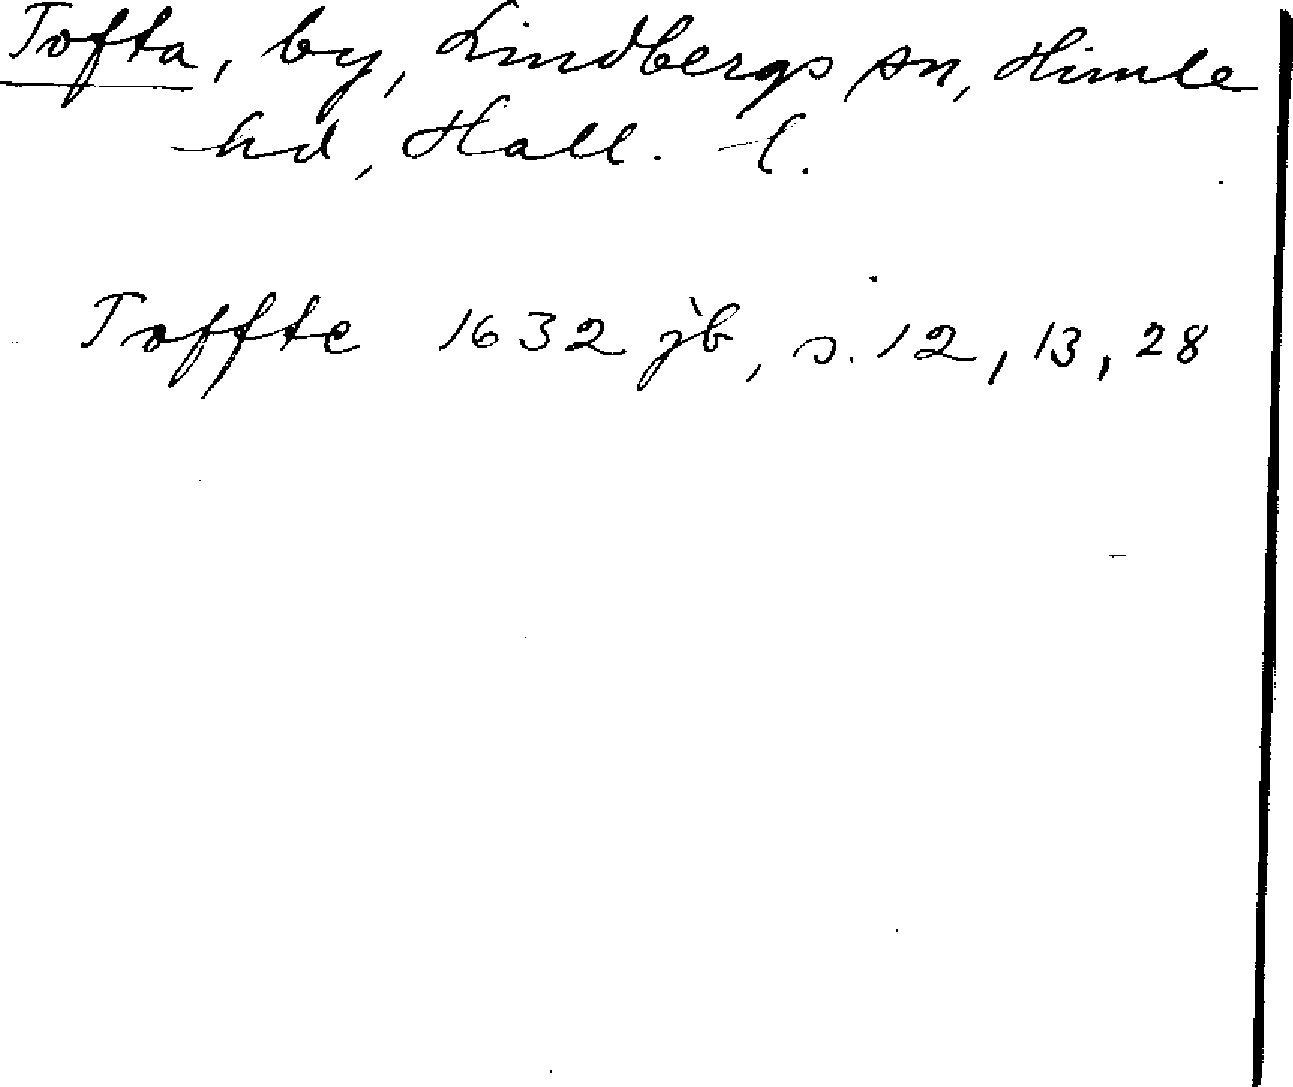 Tofta, by, Lindbergs sn, Himle
hd, Hall. l.
Toffte 1632 jb, s. 12, 13, 28